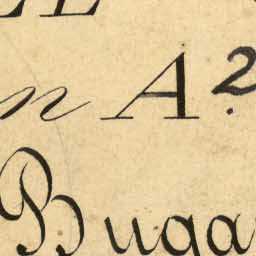 n A.2
Buga